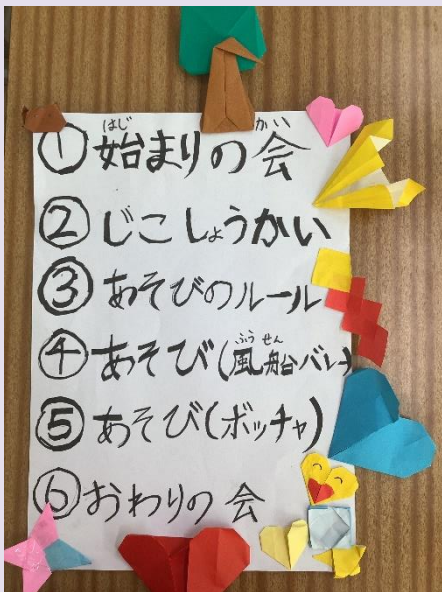 ①始まりの会
はじ かい
②じこしょうかい
③あそびのルール
④あそび(風船バレー)
ふうせん
⑤あそび(ボッチャ)
⑥おわりの会